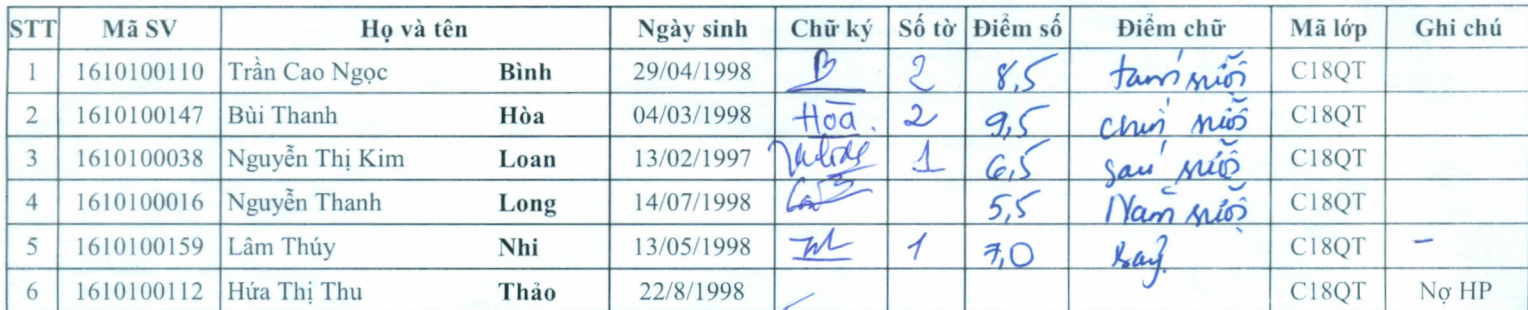 STT Mã SV Họ và tên Ngày sinh Chữ ký Số tờ Điểm số Điểm chữ Mã lớp Ghi chú
1 1610100110 Trần Cao Ngọc Bình 29/04/1998 B 2 8,5 tám rưỡi C18QT
2 1610100147 Bùi Thanh Hòa 04/03/1998 Hòa. 2 9,5 chín rưỡi C18QT
3 1610100038 Nguyễn Thị Kim Loan 13/02/1997 1 6,5 sáu rưỡi C18QT
4 1610100016 Nguyễn Thanh Long 14/07/1998 5,5 Năm rưỡi C18QT
5 1610100159 Lâm Thúy Nhi 13/05/1998 1 7,0 Bảy C18QT -
6 1610100112 Hứa Thị Thu Thảo 22/8/1998 C18QT Nợ HP